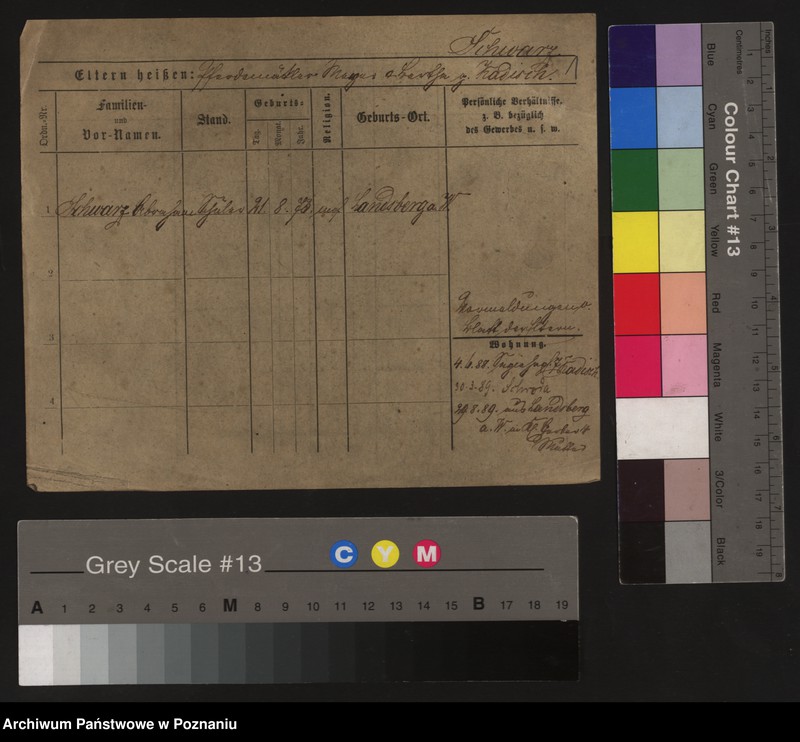 Schwarz
Eltern heißen: Pferdemäkler Meyer
Ordn.-Nr.
Familien-
und
Vor-Namen.
Stand.
Geburts-
Tag.
Monat.
Jahr.
Religion.
Geburts-Ort.
Persönliche Verhältnisse,
z. B. bezüglich
des Gewerbes u. s. w.
1 Schwarz Abraham Schüler 21 8. 73. mos Landsberg a. W.
2
3
4
Blatt der Eltern.
Wohnung.
4.6.88.
30.3.89. Schroda
29.8.89. aus Landsberg
a. W.
Mutter
Blue
Cyan
Green
Yellow
Red
Magenta
White
3/Color
Black
Colour Chart #13
Centimetres
1 2 3 4 5 6 7 8 9 10 11 12 13 14 15 16 17 18 19
Inches
1 2 3 4 5 6 7 8
Grey Scale #13
C Y M
A 1 2 3 4 5 6 M 8 9 10 11 12 13 14 15 B 17 18 19
Archiwum Państwowe w Poznaniu